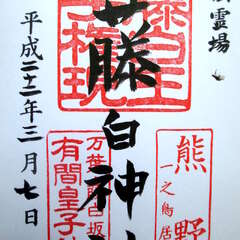 霊場
藤白神
藤白王
子権現
熊野
一之鳥居
万葉藤白坂
有間皇子
平成二十二年三月七日